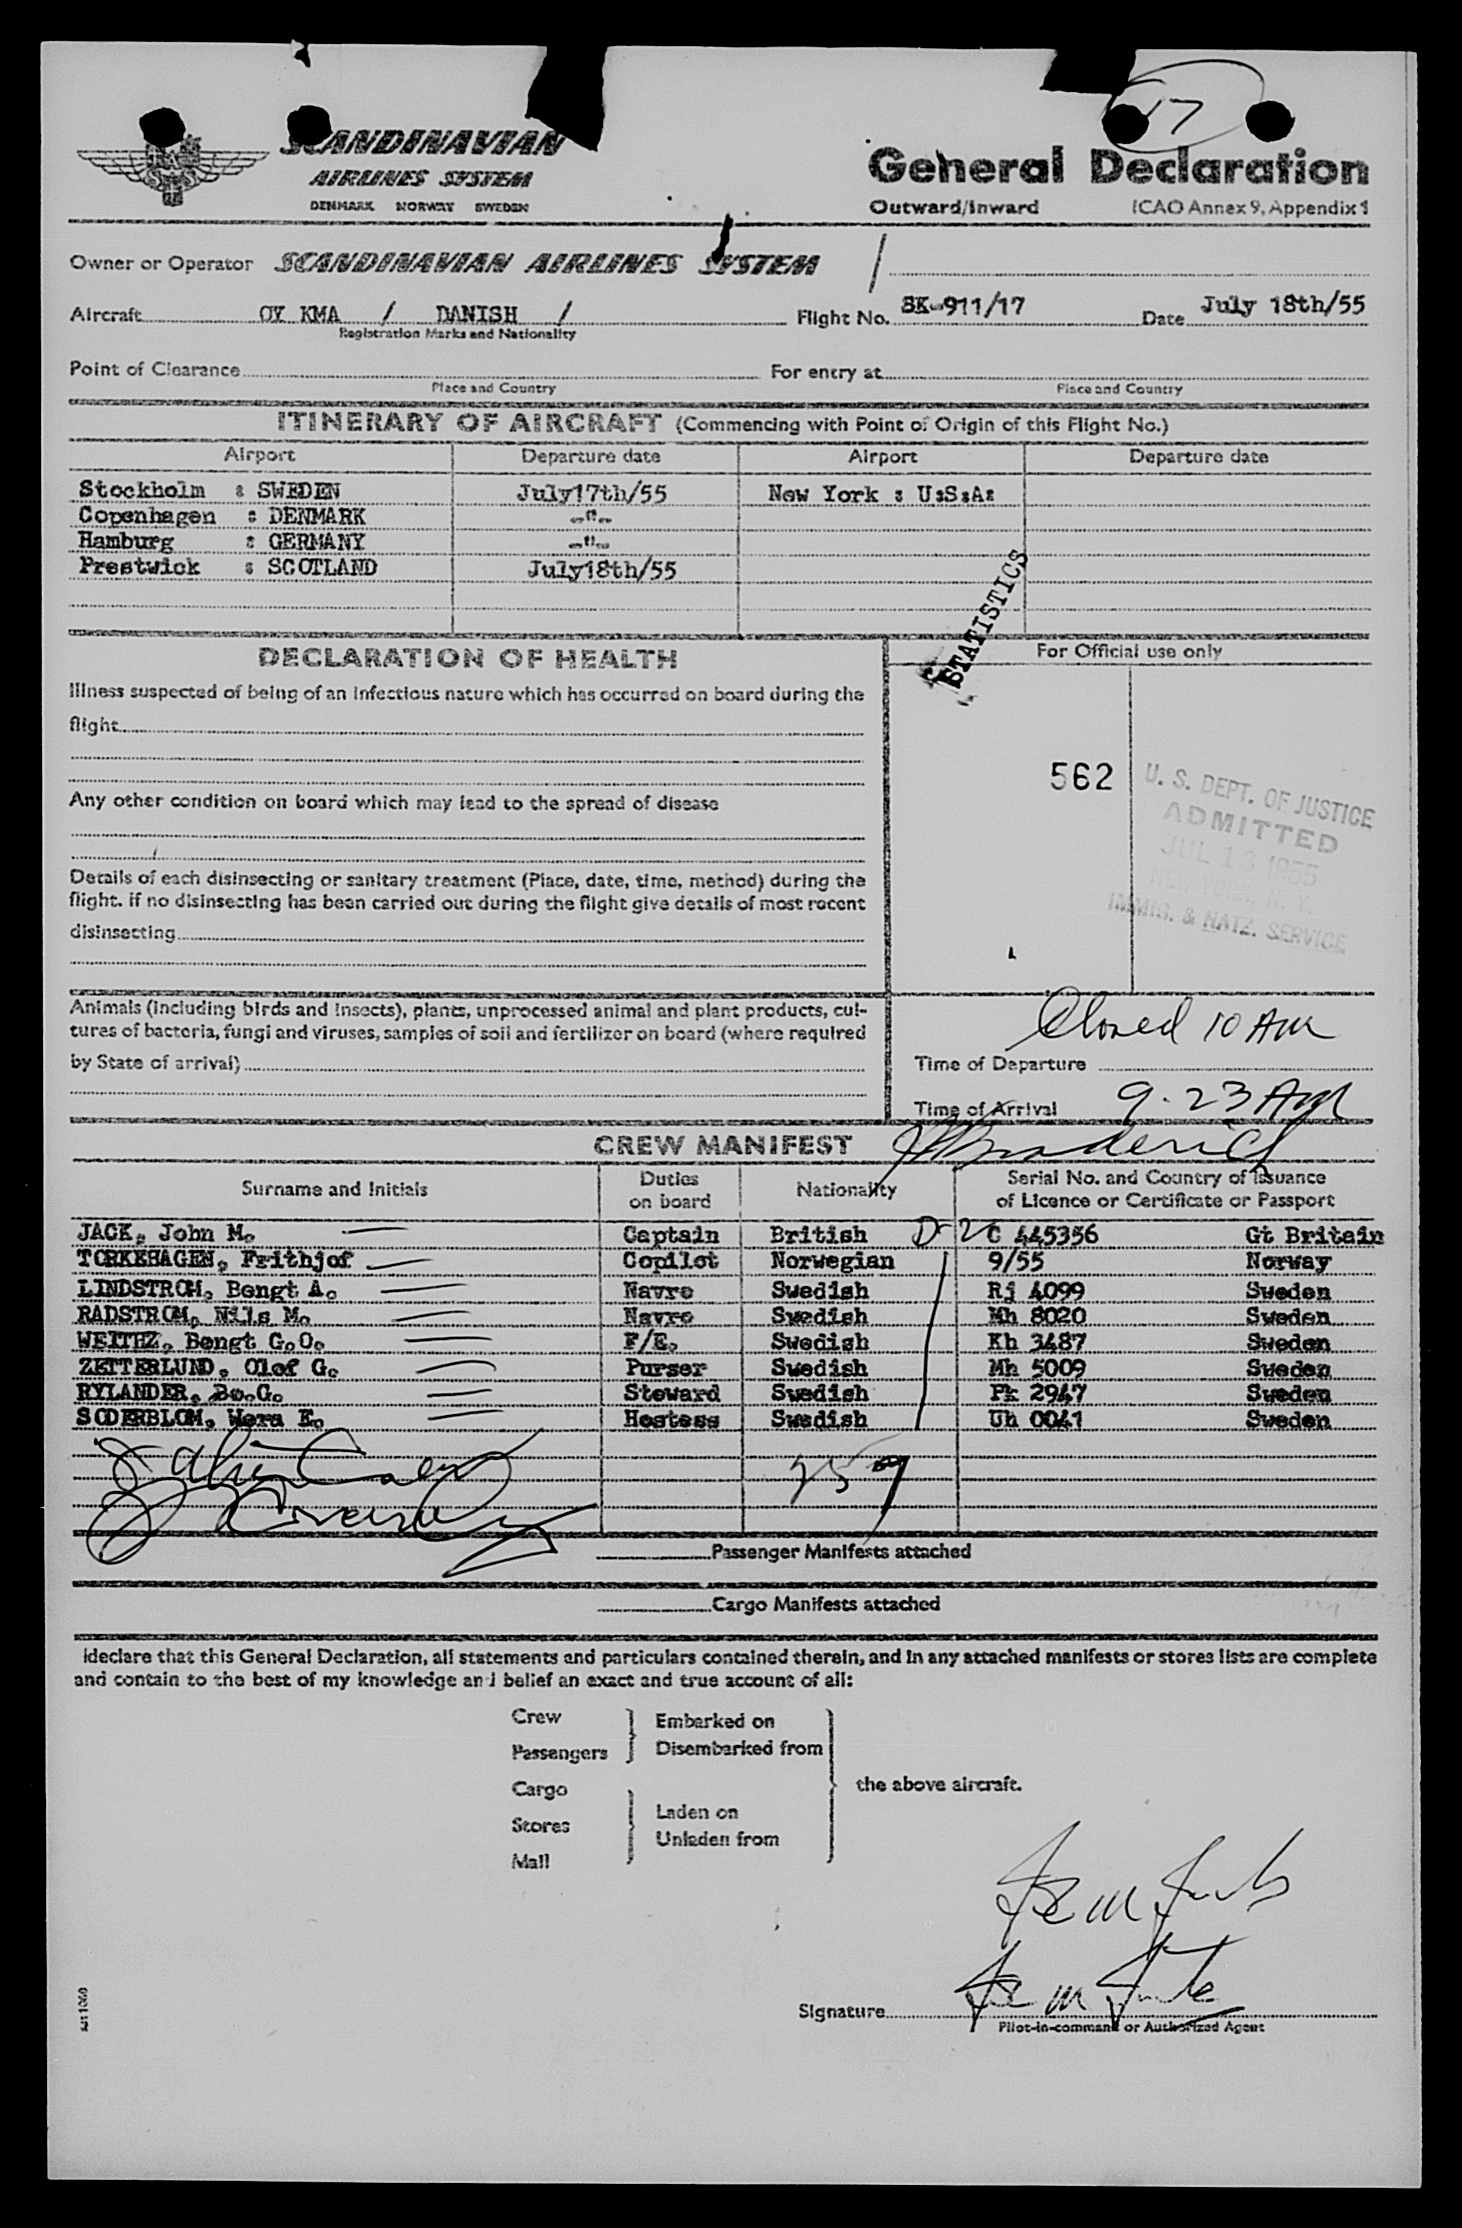 17
SCANDINAVIAN
AIRLINES SYSTEM
DENMARK NORWAY SWEDEN
General Declaration
Outward/Inward ICAO Annex 9, Appendix 1
Owner or Operator SCANDINAVIAN AIRLINES SYSTEM
Aircraft OY KMA / DANISH / Flight No. SK-911/17 Date July 18th/55
Registration Marks and Nationality
Point of Clearance For entry at
Place and Country Place and Country
ITINERARY OF AIRCRAFT (Commencing with Point of Origin of this Flight No.)
Airport Departure date Airport Departure date
Stockholm : SWEDEN July17th/55 New York : U:S:A:
Copenhagen : DENMARK -"-
Hamburg : GERMANY -"-
Prestwick : SCOTLAND July18th/55
STATISTICS
DECLARATION OF HEALTH
For Official use only
Illness suspected of being of an infectious nature which has occurred on board during the
flight
Any other condition on board which may lead to the spread of disease
Details of each disinsecting or sanitary treatment (Place, date, time, method) during the
flight. if no disinsecting has been carried out during the flight give details of most recent
disinsecting
562
U. S. DEPT. OF JUSTICE
ADMITTED
JUL 18 1955
NEW YORK, N. Y.
IMMIG. & NATZ. SERVICE
Animals (including birds and insects), plants, unprocessed animal and plant products, cul-
tures of bacteria, fungi and viruses, samples of soil and fertilizer on board (where required
by State of arrival)
Closed 10 AM
Time of Departure
Time of Arrival 9.23 AM
CREW MANIFEST
Surname and Initials Duties on board Nationality Serial No. and Country of Issuance of Licence or Certificate or Passport
JACK, John M. Captain British D-2 C 445356 Gt Britain
TORKEHAGEN, Frithjof Copilot Norwegian 9/55 Norway
LINDSTROM, Bengt A. Navro Swedish Rj 4099 Sweden
RADSTROM, Nils M. Navro Swedish Mh 8020 Sweden
WEITHZ, Bengt G.O. F/E. Swedish Kh 3487 Sweden
ZETTERLUND, Olof G. Purser Swedish Mh 5009 Sweden
RYLANDER, Bo.G. Steward Swedish Fk 2947 Sweden
SODERBLOM, Wera E. Hostess Swedish Uh 0041 Sweden
Passenger Manifests attached
Cargo Manifests attached
I declare that this General Declaration, all statements and particulars contained therein, and in any attached manifests or stores lists are complete
and contain to the best of my knowledge and belief an exact and true account of all:
Crew
Passengers
Embarked on
Disembarked from
Cargo
Stores
Mail
Laden on
Unladen from
the above aircraft.
Signature
Pilot-in-command or Authorized Agent